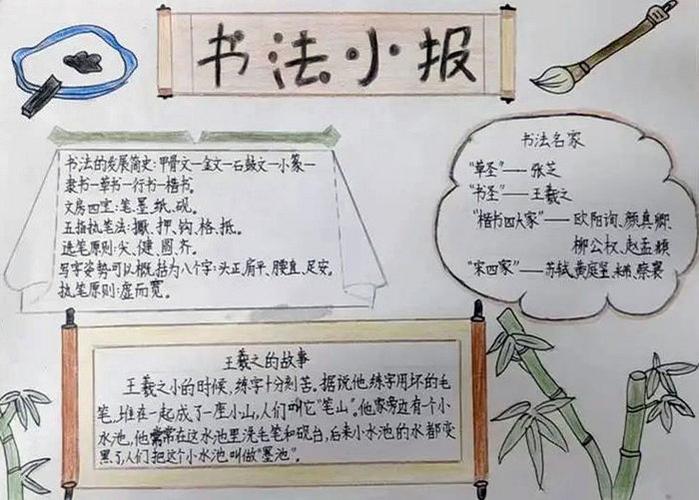 书法小报
书法的发展简史:甲骨文—金文—石鼓文—小篆—
隶书—草书—行书—楷书。
文房四宝:笔、墨、纸、砚。
五指执笔法:擫、押、钩、格、抵。
选笔原则:尖、健、圆、齐。
写字姿势可以概括为八个字:头正、肩平、腰直、足安。
执笔原则:虚而宽。
书法名家
"草圣"——张芝
"书圣"——王羲之
"楷书四大家"——欧阳询、颜真卿、
柳公权、赵孟頫
"宋四家"——苏轼、黄庭坚、米芾、蔡襄
王羲之的故事
王羲之小的时候,练字十分刻苦。据说他练字用坏的毛
笔,堆在一起成了一座小山,人们叫它"笔山"。他家旁边有个小
水池,他常常在这水池里洗毛笔和砚台,后来小水池的水都变
黑了,人们把这个小水池叫做"墨池"。